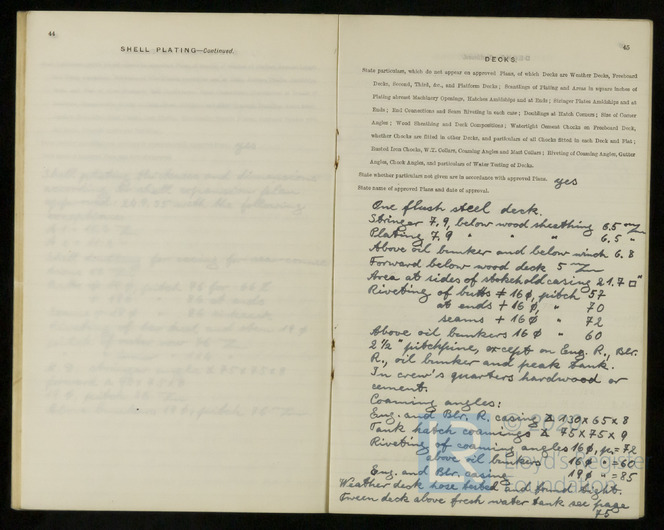 44
SHELL PLATING—Continued.
45
DECKS.
State particulars, which do not appear on approved Plans, of which Decks are Weather Decks, Freeboard
Decks, Second, Third, &c., and Platform Decks; Scantlings of Plating and Areas in square inches of
Plating abreast Machinery Openings, Hatches Amidships and at Ends; Stringer Plates Amidships and at
Ends; End Connections and Seam Riveting in each case; Doublings at Hatch Corners; Size of Corner
Angles; Wood Sheathing and Deck Compositions; Watertight Cement Chocks on Freeboard Deck,
whether Chocks are fitted in other Decks, and particulars of all Chocks fitted in each Deck and Flat;
Rusted Iron Chocks, W.T. Collars, Coaming Angles and Mast Collars; Riveting of Coaming Angles, Gutter
Angles, Chock Angles, and particulars of Water Testing of Decks.
State whether particulars not given are in accordance with approved Plans. yes
State name of approved Plans and date of approval.
One flush steel deck.
Stringer 7,9, below wood sheathing 6.5 m/m
Plating 7,9 " " " 6.5 "
Above oil bunker and below winch 6.8
Forward below wood deck 5 m/m
Area at sides of stokehold casing 21.7 □"
Riveting of butts ‡ 16 ϕ, pitch 57
at ends + 16 ϕ, " 70
seams + 16 ϕ " 72
Above oil bunkers 16 ϕ " 60
2 ½" pitchpine, except on Eng. R., Blr.
R., oil bunker and peak tank.
In crew's quarters hardwood or
cement.
Coaming angles:
Eng. and Blr. R. casing 130 x 65 x 8
Tank hatch coamings 75 x 75 x 9
Riveting of coaming angles 16 ϕ, = 72
above oil bunkers 16 ϕ " = 60
Eng. and Blr. casing 19 ϕ " = 85
Weather deck hose tested and found tight.
Tween deck above fresh water tank see page
75
© 20
Lloyd's Register
Foundation